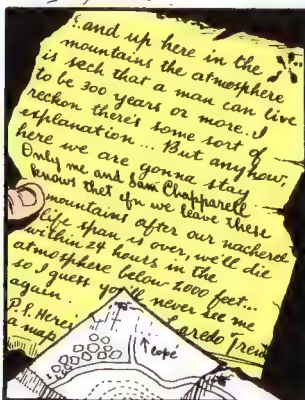 "..and up here in the
mountains the atmosphere
is sech that a man can live
to be 300 years or more. I
reckon there's some sort of
explanation... But anyhow,
here we are gonna stay.
Only me and Sam Chapparell
knows thet ifn we leave these
mountains after our nacherel
life span is over, we'll die
within 24 hours in the
atmosphere below 2000 feet...
so I guess you'll never see me
again.
Laredo Trent
P.S. Here's
a map